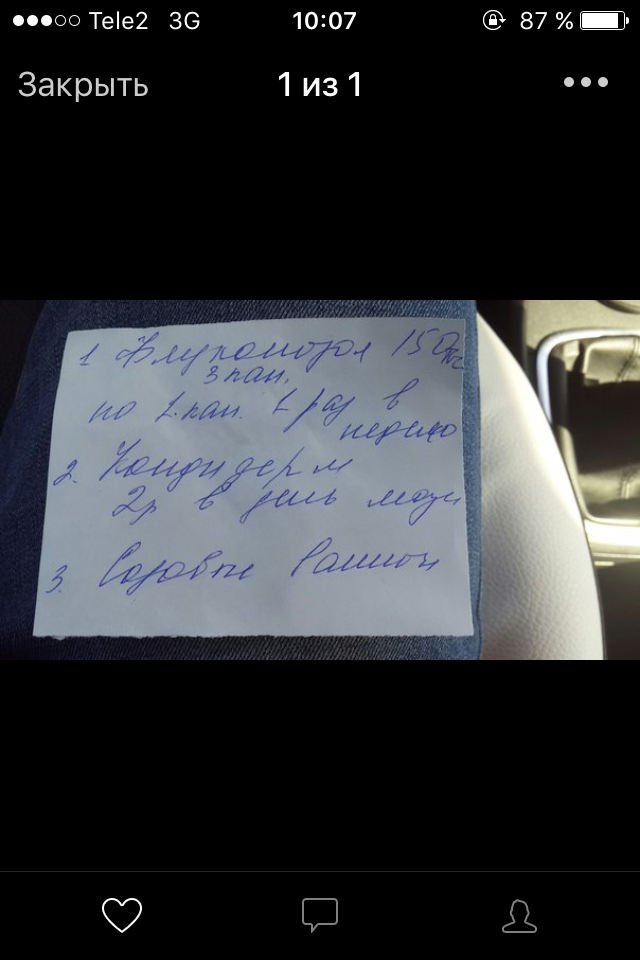 Tele2 3G 10:07 87 %
Закрыть 1 из 1
1 Флуконозол 150мг
3 кап.
по 1 кап. 1 раз в
неделю
2. Кандидерм
2р в день мази
3. Содовые Ванночк